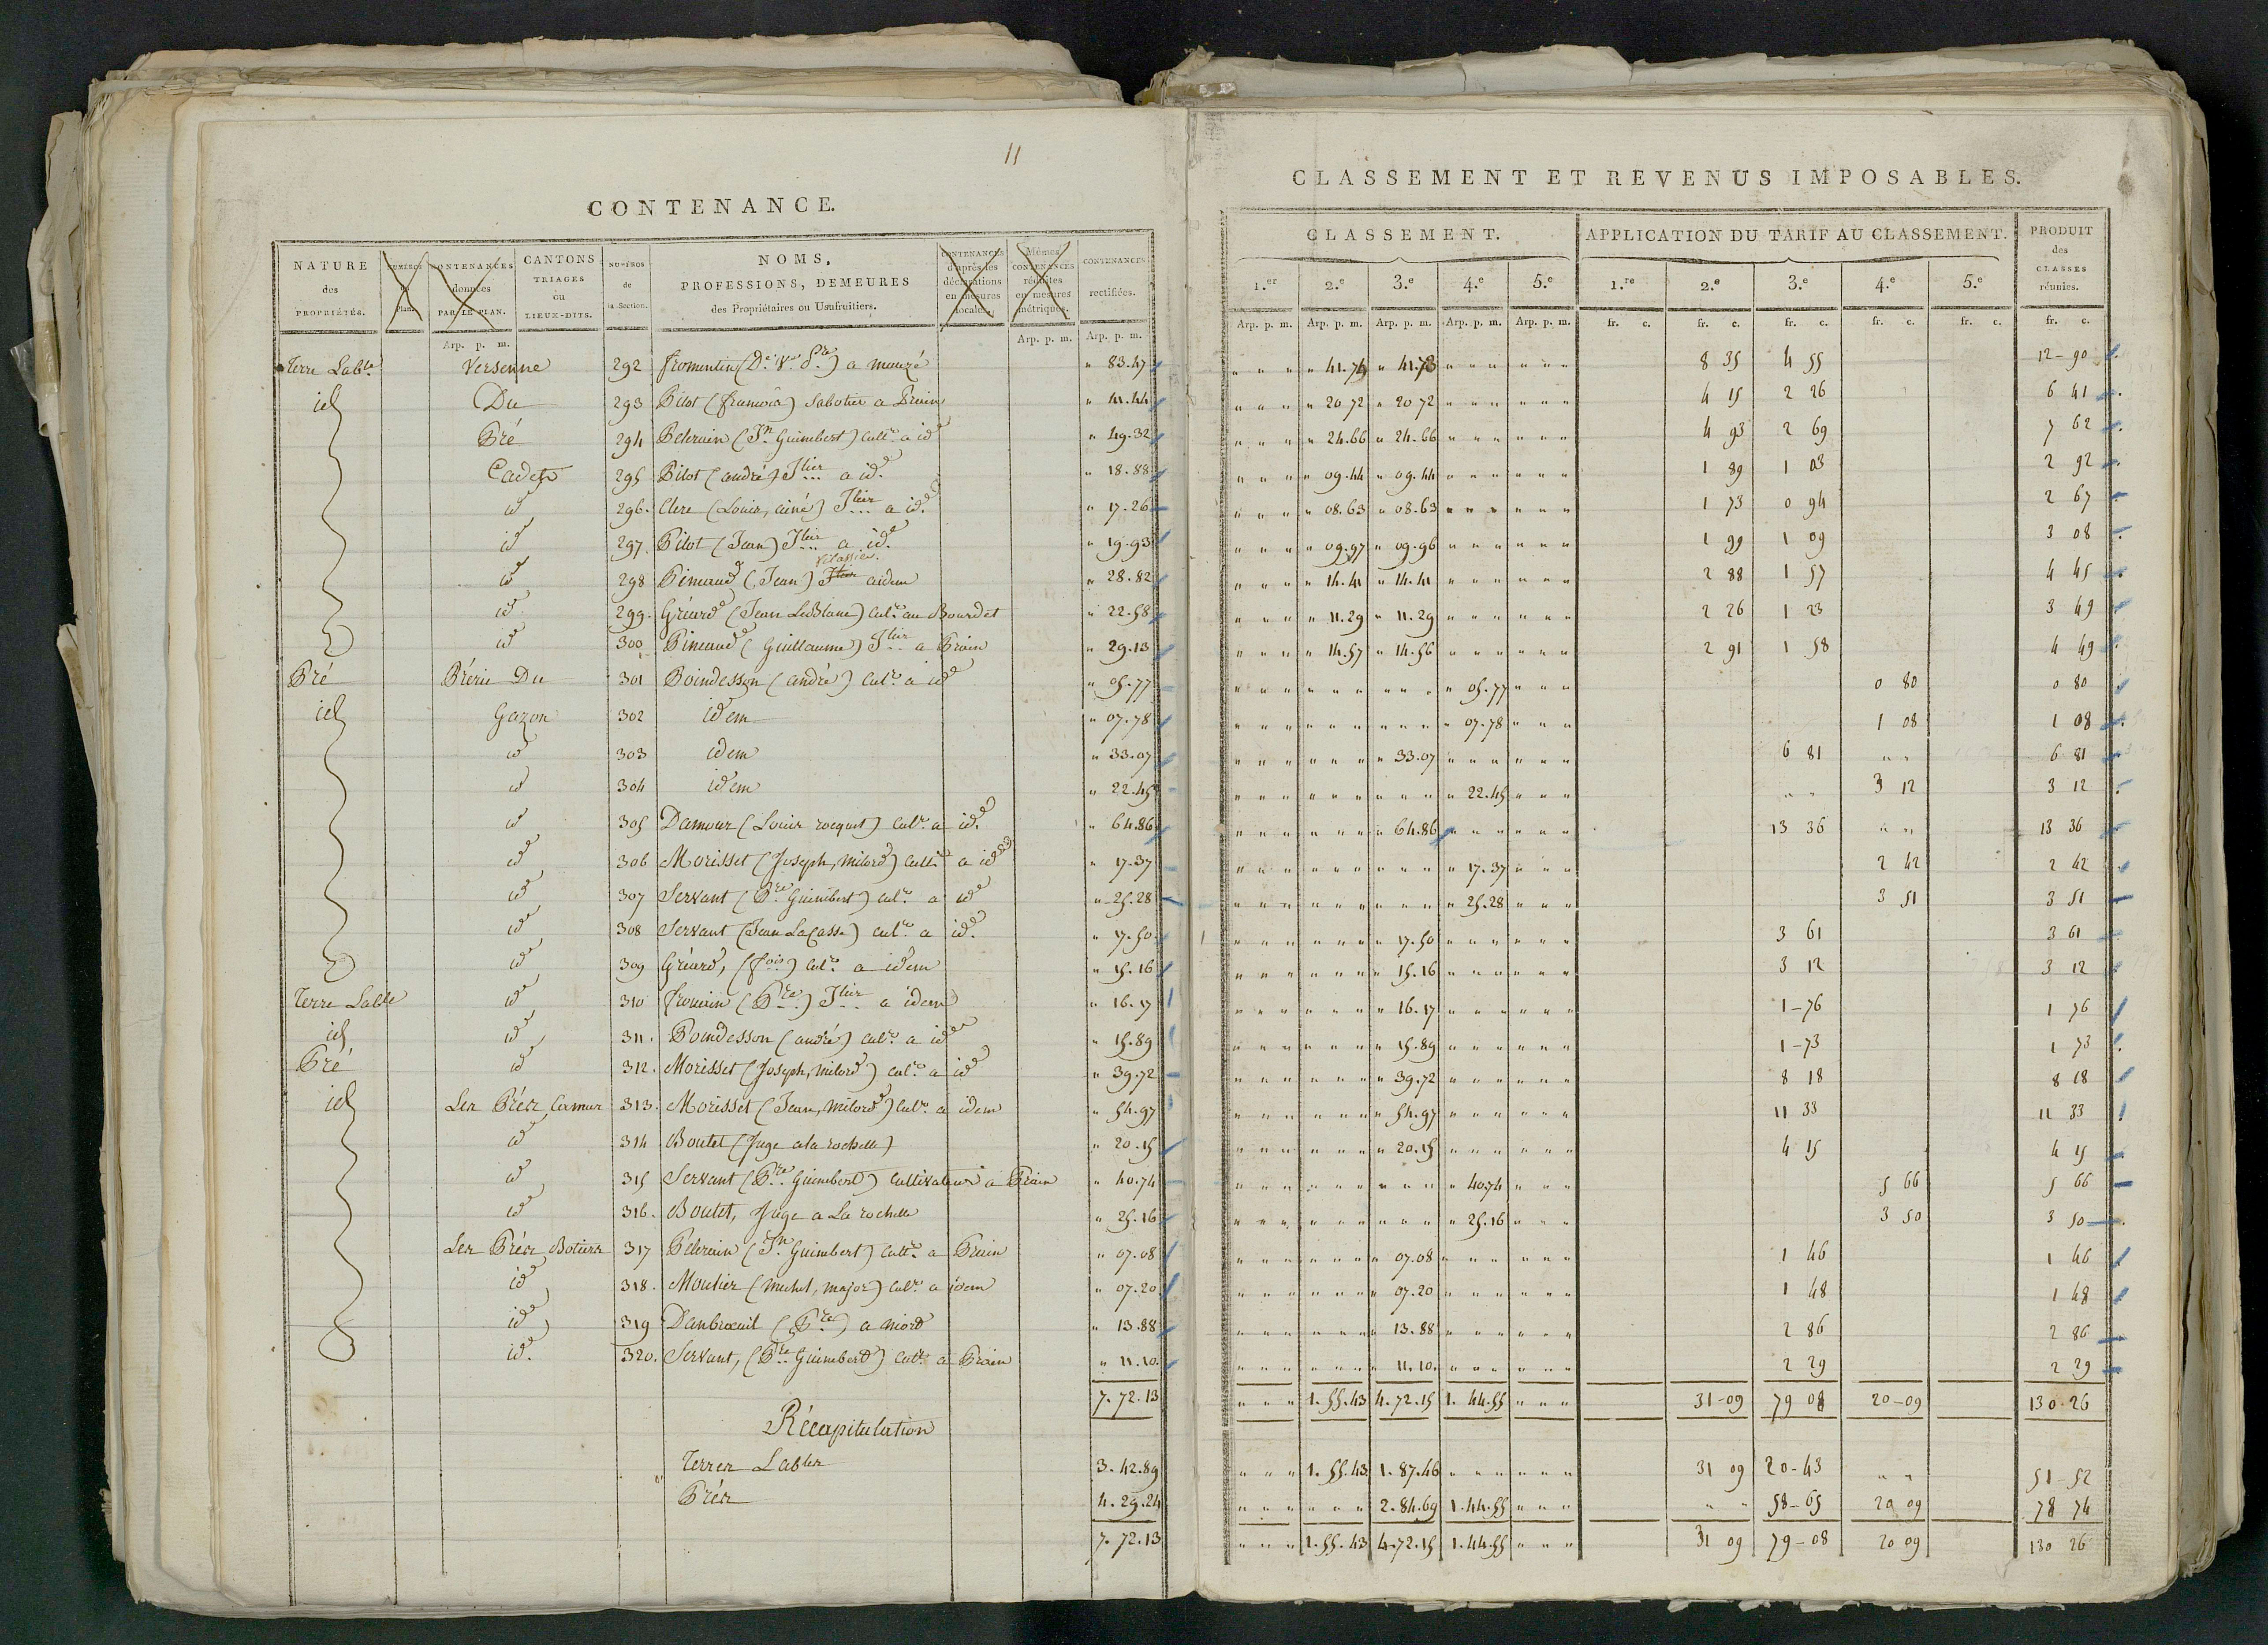 11
CONTENANCE.
NATURE des PROPRIÉTÉS. NUMÉROS du Plan. CONTENANCES données PAR LE PLAN. CANTONS TRIAGES ou LIEUX-DITS. NUMÉROS de la Section. NOMS, PROFESSIONS, DEMEURES des Propriétaires ou Usufruitiers. CONTENANCES d'après les déclarations en mesures locales. Mêmes CONTENANCES réduites en mesures métriques. CONTENANCES rectifiées.
Arp. p. m. Arp. p. m. Arp. p. m.
Terre Lable Versenne 292 fromentin (De Ve) a mauzé " 83.47
id Du 293 Pilot (francois) Sabotier a Priain " 41.44
Pré 294 Pelerain (Jn Guimbert) cultr a id " 49.32
Cadet 295 Pilot (andré) Jlier a id. " 18.88
id 296. Clere (Louis, ainé) Jlier a id. " 17.26
id 297 Pilot (Jean) Jlier a id. " 19.93
id 298 Pineaud (Jean) filassier aidem " 28.82
id 299. Gréard (Jean LeBlanc) culr au Bourdet " 22.58
id 300 Pineaud (Guillaume) Jlier a Priain " 29.13
Pré Prérie Du 301 Poindesson (andré) culr a id " 05.77
id Gazon 302 idem " 07.78
id 303 idem " 33.07
id 304 idem " 22.45
id 305 Damour (Louis rocquet) culr a id. " 64.86
id 306 Morisset (Joseph, milord) cultr a id " 17.37
id 307 Servant (Pre Guimbert) culr a id " 25.28
id 308 Servant (Jean LaCasse) culr a id. " 17.50
id 309 Gréard, (fois) culr a idem " 15.16
Terre Lable id 310 fromin (Pre) Jlier a idem " 16.17
id id 311. Poindesson (andré) culr a id " 15.89
Pré id 312. Morisset (Joseph, milord) culr a id " 39.72
id Les Prées Cormur 313. Morisset (Jean, milord) culr a idem " 54.97
id 314 Boutet (Juge a la rochelle) " 20.15
id 315 Servant (Pre Guimbert) cultivateur a Priain " 40.74
id 316. Boutet, Juge a La rochelle " 25.16
Les Prées Botiers 317 Pelerain (Jn Guimbert) cultr a Priain " 07.08
id 318. Moulier (michel, major) culr a idem " 07.20
id 319 Danbroeuil (Pre) a niord " 13.88
id. 320. Servant, (Pre Guimbert) cultr a Priain " 11.10
7.72.13
Récapitulation
Terres Lables 3.42.89
Prées 4.29.24
7.72.13
CLASSEMENT ET REVENUS IMPOSABLES.
CLASSEMENT. APPLICATION DU TARIF AU CLASSEMENT. PRODUIT des CLASSES réunies.
1.er 2.e 3.e 4.e 5.e 1.re 2.e 3.e 4.e 5.e
Arp. p. m. Arp. p. m. Arp. p. m. Arp. p. m. Arp. p. m. fr. c. fr. c. fr. c. fr. c. fr. c. fr. c.
" 41.74 " 41.73 8 35 4 55 12-90
" 20 72 " 20 72 4 15 2 26 6 41
" 24.66 " 24.66 4 93 2 69 7 62
" 09.44 " 09.44 1 89 1 03 2 92
" 08.63 " 08.63 1 73 0 94 2 67
" 09.97 " 09.96 1 99 1 09 3 08
" 14.41 " 14.41 2 88 1 57 4 45
" 11.29 " 11.29 2 26 1 23 3 49
" 14.57 " 14.56 2 91 1 58 4 49
" 05.77 0 80 0 80
" 07.78 1 08 1 08
" 33.07 6 81 " " 6 81
" 22.45 " " 3 12 3 12
" 64.86 13 36 " " 13 36
" 17.37 2 42 2 42
" 25.28 3 51 3 51
" 17.50 3 61 3 61
" 15.16 3 12 3 12
" 16.17 1-76 1 76
" 15.89 1-73 1 73
" 39.72 8 18 8 18
" 54.97 11 33 11 33
" 20.15 4 15 4 15
" 40.74 5 66 5 66
" 25.16 3 50 3 50
" 07.08 1 46 1 46
" 07.20 1 48 1 48
" 13.88 2 86 2 86
" 11.10. 2 29 2 29
1.55.43 4.72.15 1.44.55 31-09 79 08 20-09 130.26
1.55.43 1.87.46 31 09 20-43 " " 51-52
2.84.69 1.44.55 " " 58-65 20 09 78 74
1.55.43 4.72.15 1.44.55 31 09 79-08 20 09 130 26